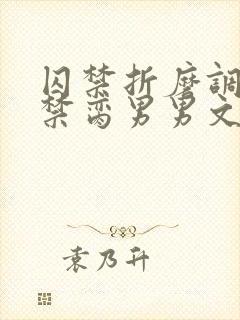 囚禁折磨調
禁脔男男文
袁乃升